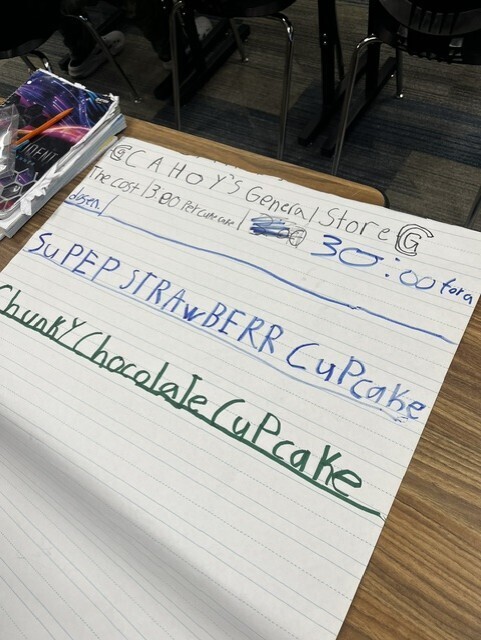 G CAHOY'S General Store G
The Cost 13.00 Per cupcake / 30:00 for a
dosen /
SuPEP STRAwBERR CuPcake
ChunKY Chocolate CuPcake